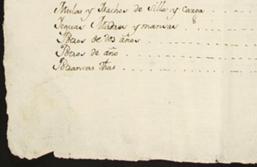 Mulas y Machos de Silla y Carga
Yeguas Madres y mansas
Potros de dos años
Potros de año
Potrancas Ydas